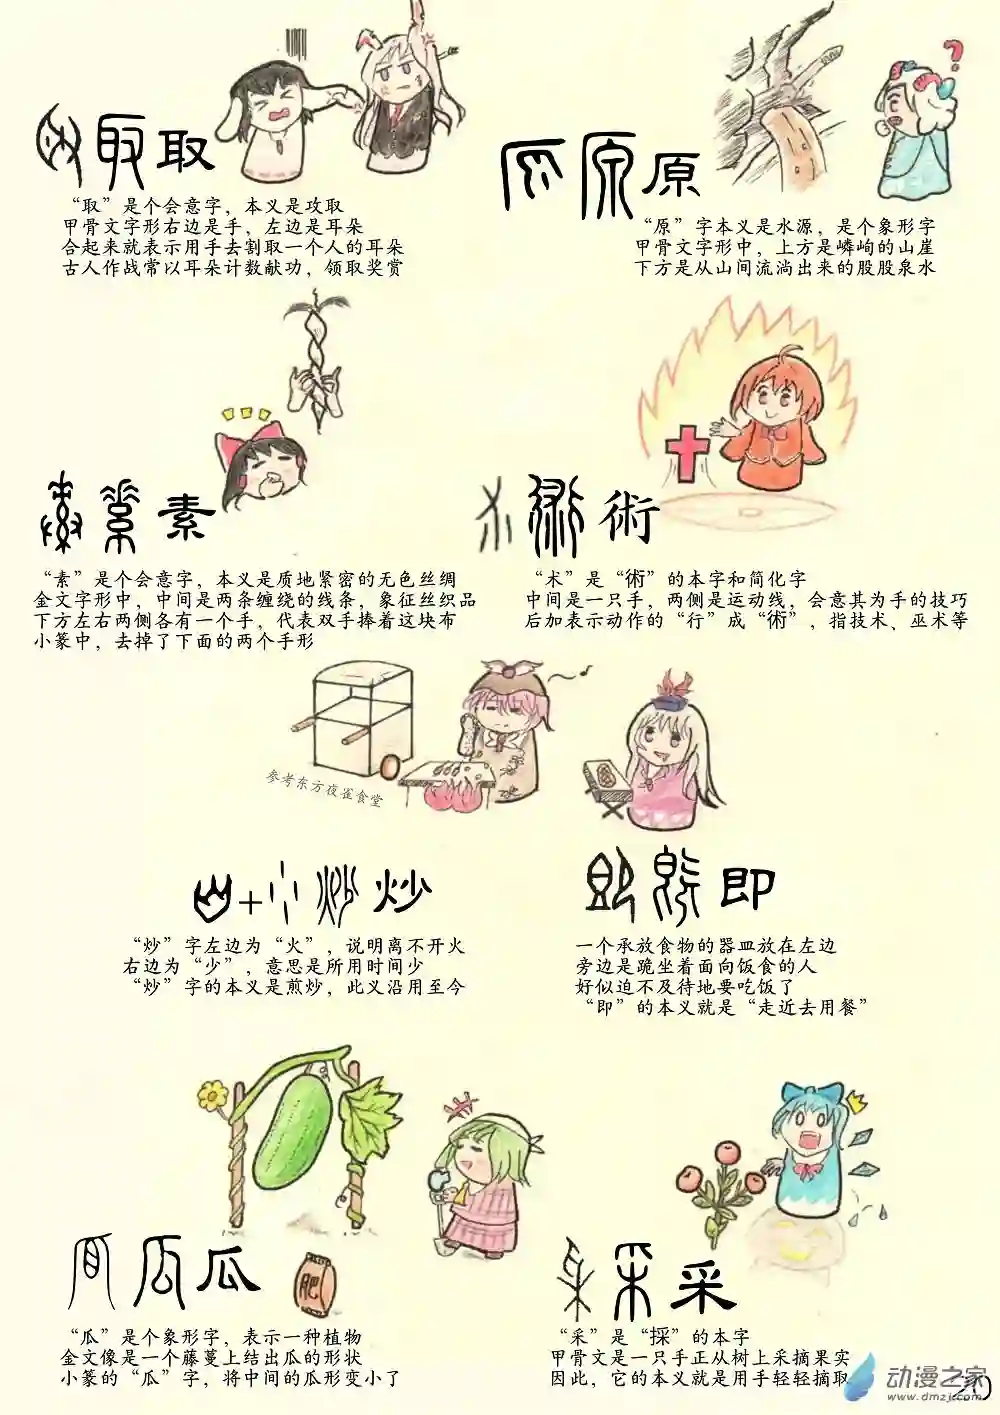 取取
“取”是个会意字，本义是攻取
甲骨文字形右边是手，左边是耳朵
合起来就表示用手去割取一个人的耳朵
古人作战常以耳朵计数献功，领取奖赏
?
原
“原”字本义是水源，是个象形字
甲骨文字形中，上方是嶙峋的山崖
下方是从山间流淌出来的股股泉水
素
“素”是个会意字，本义是质地紧密的无色丝绸
金文字形中，中间是两条缠绕的线条，象征丝织品
下方左右两侧各有一个手，代表双手捧着这块布
小篆中，去掉了下面的两个手形
術
“术”是“術”的本字和简化字
中间是一只手，两侧是运动线，会意其为手的技巧
后加表示动作的“行”成“術”，指技术、巫术等
参考东方夜雀食堂
+ 炒
“炒”字左边为“火”，说明离不开火
右边为“少”，意思是所用时间少
“炒”字的本义是煎炒，此义沿用至今
即
一个承放食物的器皿放在左边
旁边是跪坐着面向饭食的人
好似迫不及待地要吃饭了
“即”的本义就是“走近去用餐”
瓜瓜
肥
“瓜”是个象形字，表示一种植物
金文像是一个藤蔓上结出瓜的形状
小篆的“瓜”字，将中间的瓜形变小了
采
“采”是“採”的本字
甲骨文是一只手正从树上采摘果实
因此，它的本义就是用手轻轻摘取
动漫之家
www.dmzj.com
20